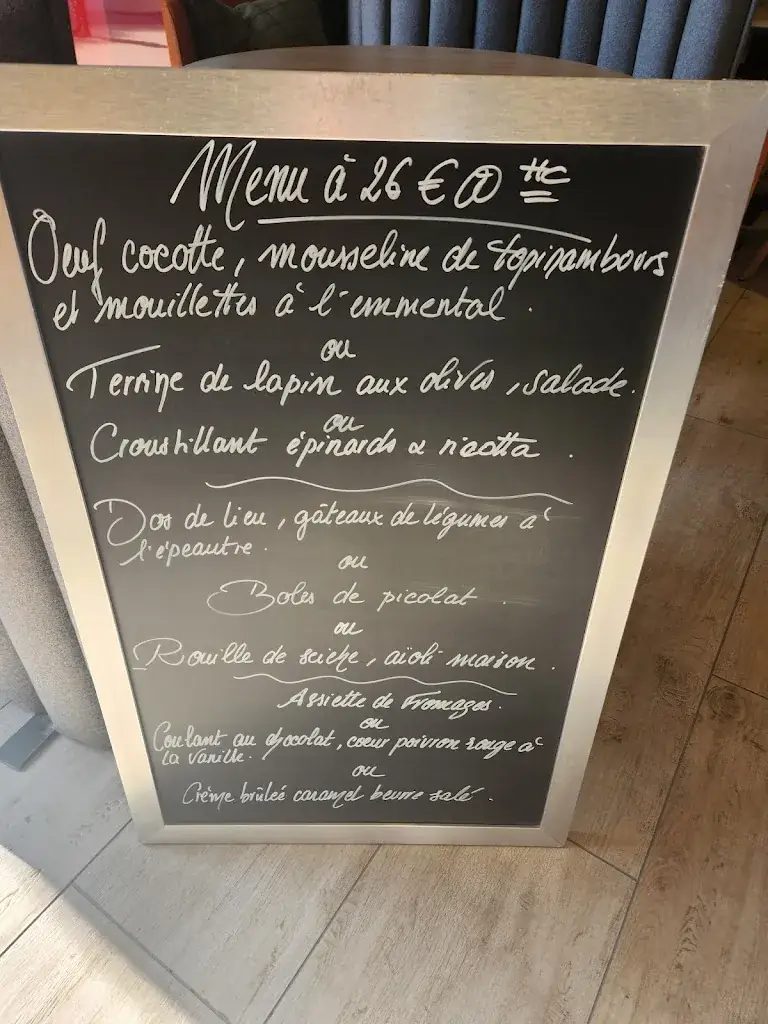 Menu à 26 € HC
Oeuf cocotte, mousseline de topinambours
et mouillettes à l'emmental.
ou
Terrine de lapin aux olives, salade.
ou
Croustillant épinards & ricotta.
Dos de lieu, gâteaux de légumes à
l'épeautre.
ou
Boles de picolat.
ou
Rouille de seiche, aïoli maison.
Assiette de Fromages.
ou
Coulant au chocolat, coeur poivron rouge à
la vanille.
ou
Crème brûlée caramel beurre salé.